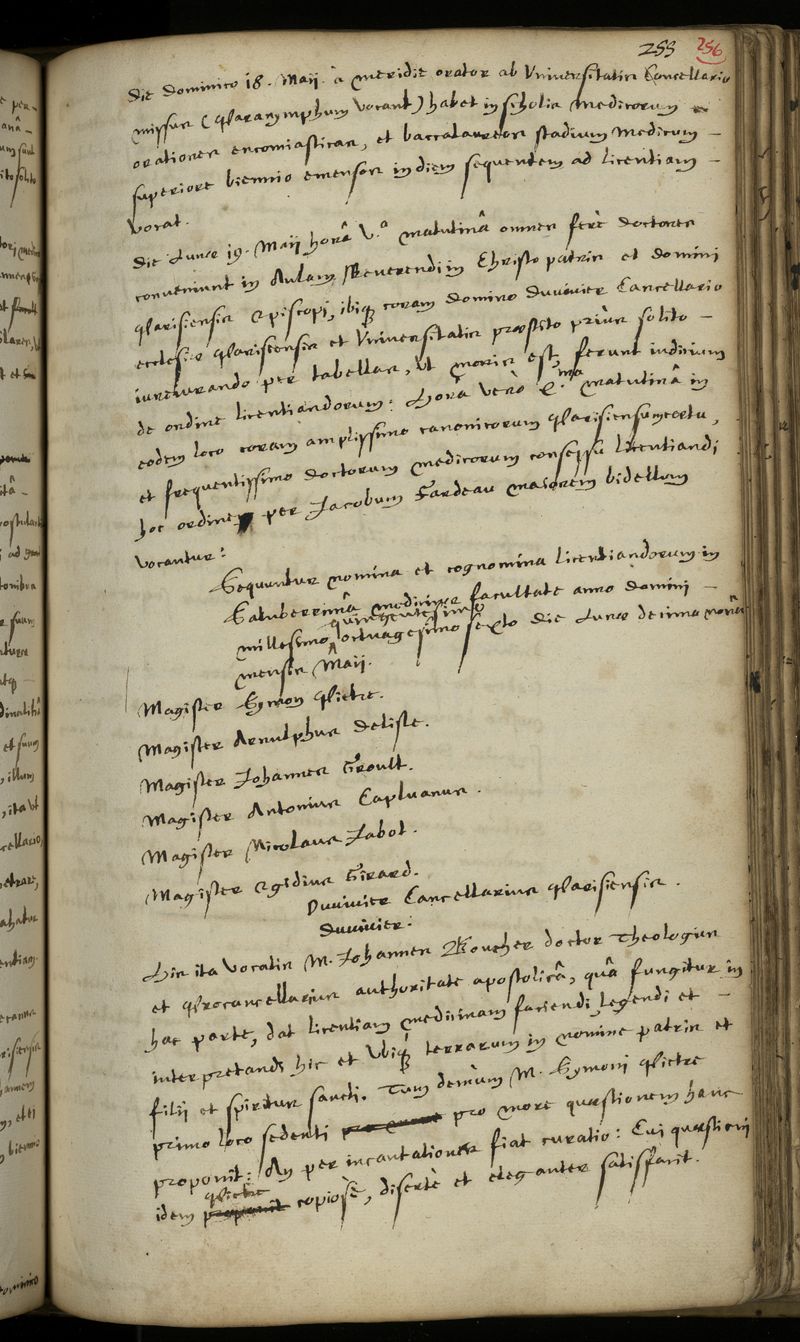 253 256
Die Dominico 18. Maij à meridie orator ab Universitatis Cancellario
missus (Paranymphum vocant) habet in scholis medicorum
orationes encomiasticas, et baccalaureos stadium medicum –
superiore biennio emensos in diem sequentem ad licentiam –
vocat.
Die Lunae 19. Maij horâ V.ª matutinâ omnes ferè doctores
conveniunt in Aulam Reverendi in Christo patris et domini
Parisiensis Episcopi, ibiq; coram domino Duvivier Cancellario
ecclesiae Parisiensis et Universitatis praestito priùs solito –
iureiurando per tabellas, ut moris est, ferunt iudicium
de ordine licentiandorum: Horâ verò matutinâ in
eodem loco coram amplissimo canonicorum Parisiensium coetu,
et frequentissimo doctorum medicorum consessu licentiandi
hoc ordine per Jacobum Gardeau maiorem bidellum
vocantur:
Sequuntur nomina et cognomina licentiandorum in
Saluberrimâ medicinae facultate anno domini –
millesimo quingentesimo octuagesimo sexto die Lunae decima nonâ
mensis Maij.
Magister Symon Pietre.
Magister Arnulphus Delisle.
Magister Johannes Groult.
Magister Antonius Capluanus.
Magister Nicolaus Jabot.
Magister Egidius Girard.
Duvivier Cancellarius Parisiensis.
Duvivier:
His ita vocatis M. Johannes Boucher doctor Theologus
et Procancellarius authoritate apostolicâ, quâ fungitur in
hac parte, dat licentiam medicinam faciendi legendi et –
interpretandi hic et ubiq; terrarum in nomine patris et
filij et spiritus sancti. Tum demùm M. Symoni Pietre
primo loco sedenti pro more quaestionem hanc
proponit: An per incantationes fiat curatio: Cui quaestioni
idem Pietre copiosè, disertè et eleganter satisfacit.